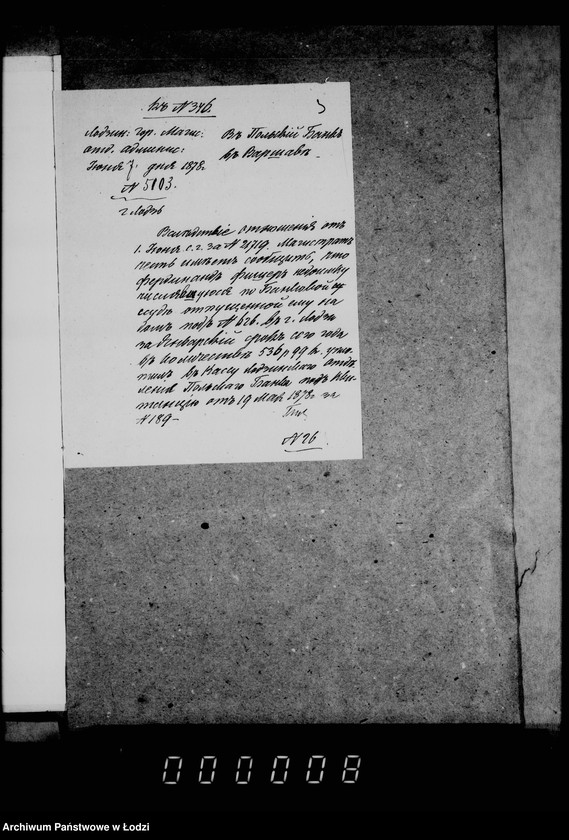 къ № 346.
Лодзин: гор. Магис:
отд. админис:
Іюня 7 дня 1878 г.
№ 5103.
г. Лодзь
Въ Польскій Банкъ
въ Варшавѣ.
Вслѣдствіе отношенія отъ
1. Іюня с. г. за № 21719. Магистратъ
честь имѣетъ сообщить, что
Фердинандъ Фишеръ недоимку
числящуюся по Банковой
ссудѣ отпущенной ему на
домъ подъ № 626. въ г. Лодзи
за Январскій срокъ сего года
въ количествѣ 536 р 99 к.
въ Кассу Лодзинскаго отдѣ
ленія Польскаго Банка подъ кви-
танцію отъ 19 Мая 1878 г. за
№ 189 -
№ 26
000008
Archiwum Państwowe w Łodzi